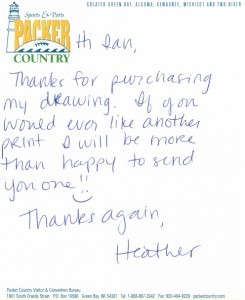 GREATER GREEN BAY, ALGOMA, KEWAUNEE, WISHICOT AND TWO RIVERS
Sports & Parts
PACKER
COUNTRY
Hi Ian,
Thanks for purchasing
my drawing. If you
would ever like another
print I will be more
than happy to send
you one!!
Thanks again,
Heather
Packer Country Visitor & Convention Bureau
1901 South Oneida Street P.O. Box 10596 Green Bay, WI 54307 Tel: 1-888-867-3342 Fax: 920-494-9229 packercountry.com